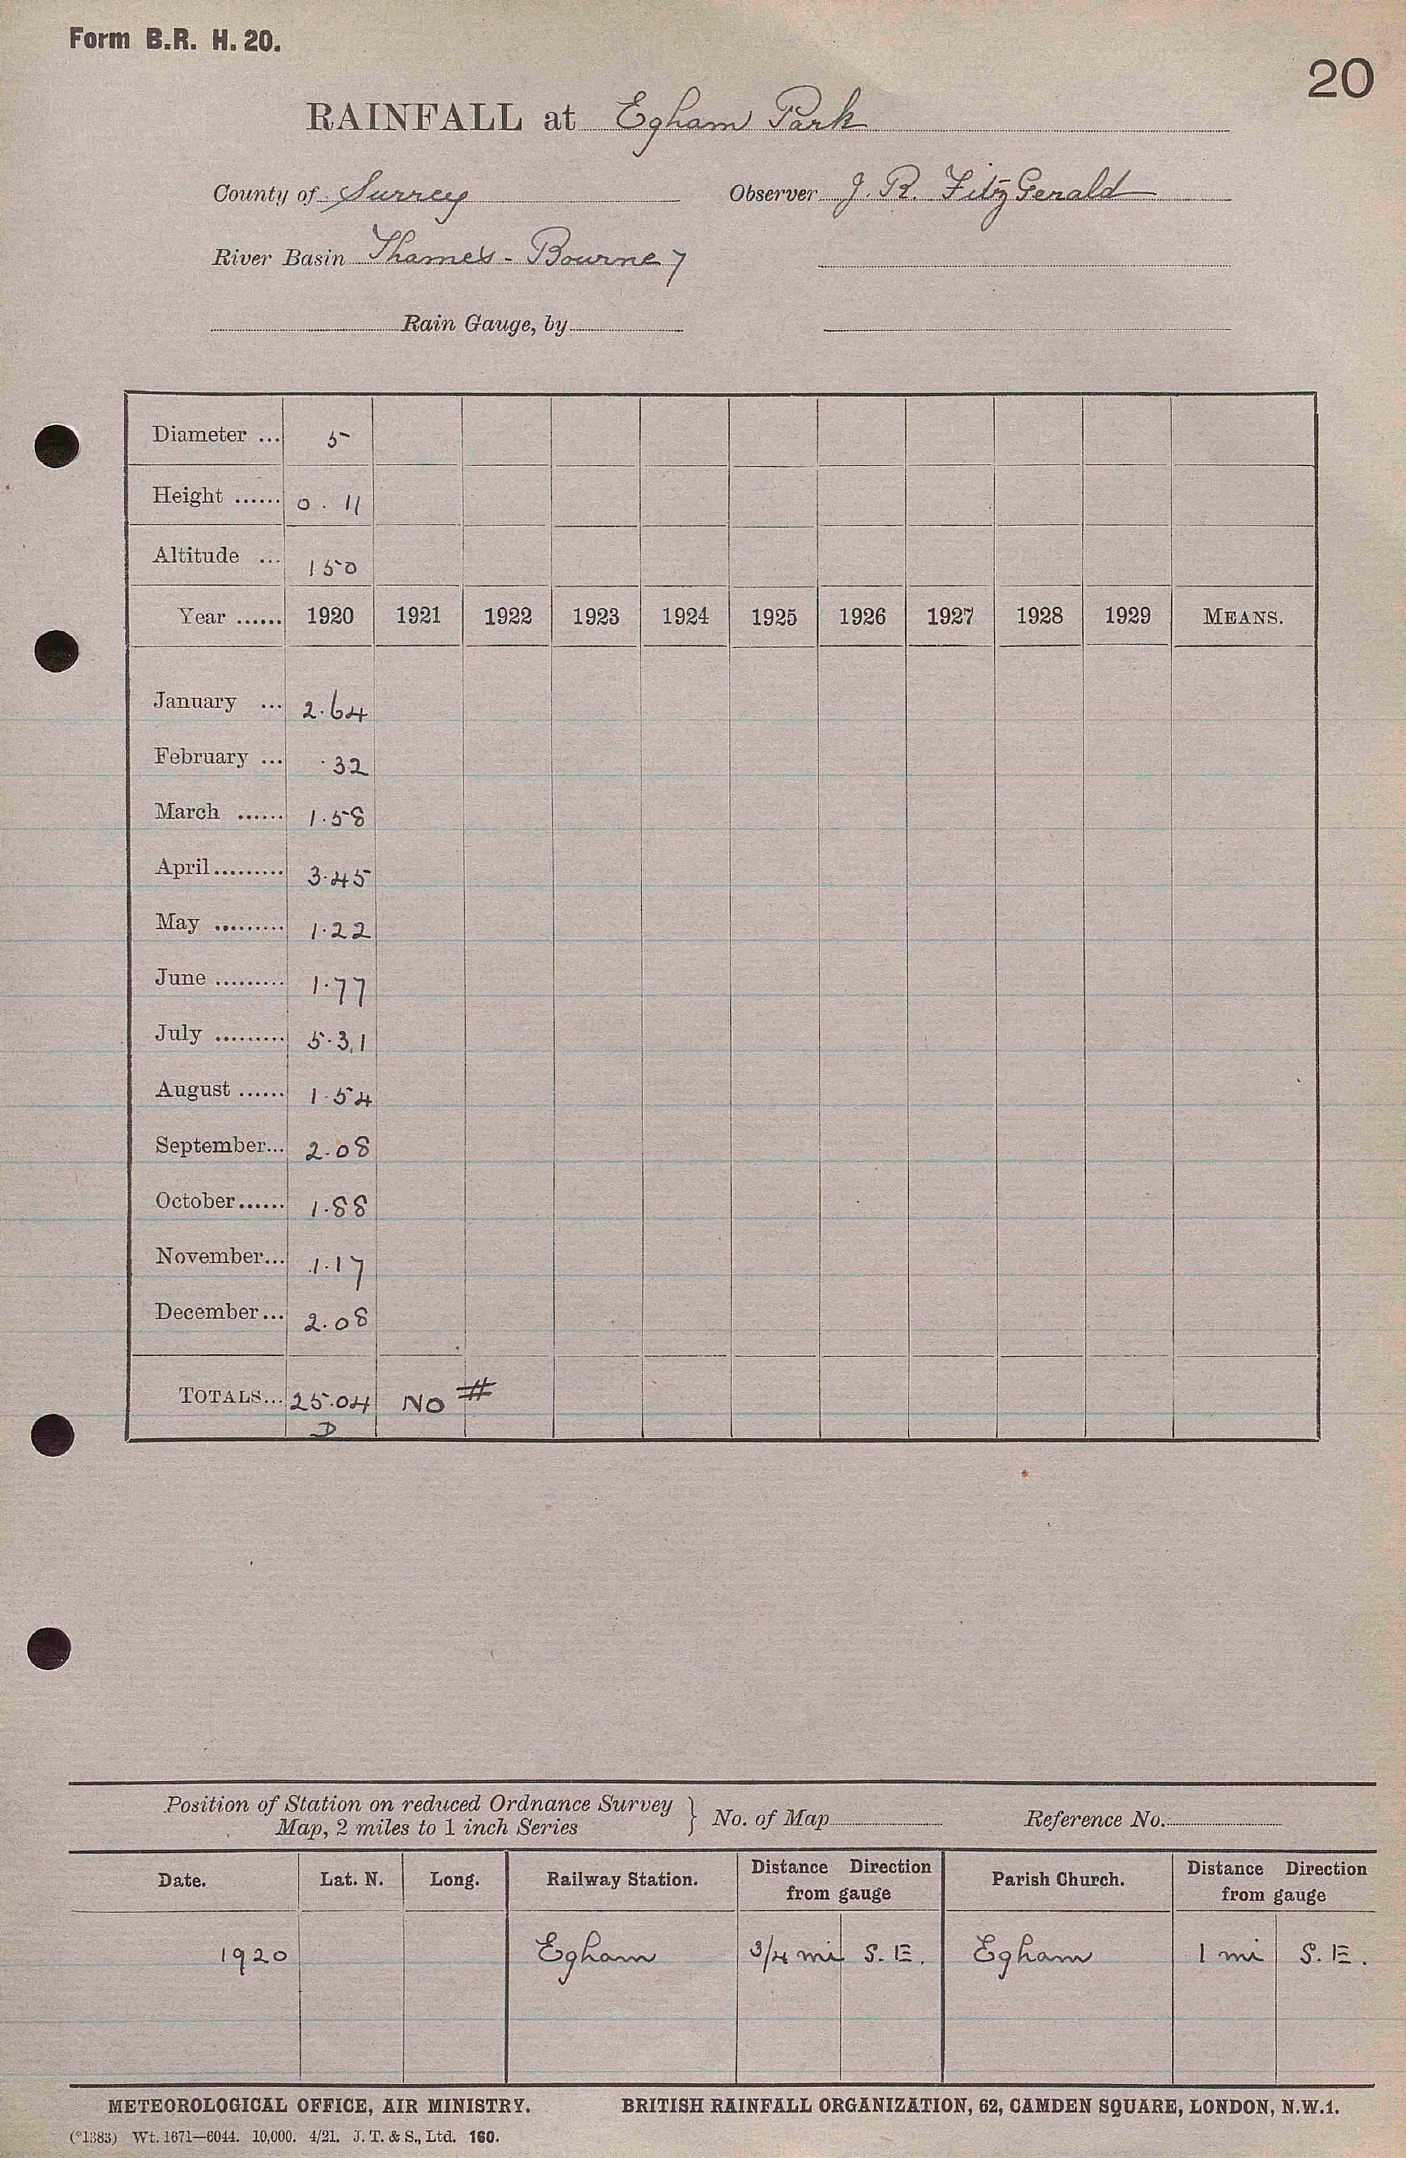 Form B.R. H. 20.
20
RAINFALL at Egham Park
County of Surrey Observer J. R. FitzGerald
River Basin Thames - Bourne 7
Rain Gauge, by
Diameter ... 5
Height ...... 0 . 11
Altitude ... 150
Year ...... 1920 1921 1922 1923 1924 1925 1926 1927 1928 1929 MEANS.
January ... 2.64
February ... .32
March ...... 1.58
April ......... 3.45
May ......... 1.22
June ......... 1.77
July ......... 5.31
August ...... 1.54
September... 2.08
October...... 1.88
November... 1.17
December... 2.08
TOTALS... 25.04 NO #
D
Position of Station on reduced Ordnance Survey
Map, 2 miles to 1 inch Series } No. of Map Reference No.
Date. Lat. N. Long. Railway Station. Distance Direction from gauge Parish Church. Distance Direction from gauge
1920 Egham 3/4 mi S. E. Egham 1 mi S. E.
METEOROLOGICAL OFFICE, AIR MINISTRY. BRITISH RAINFALL ORGANIZATION, 62, CAMDEN SQUARE, LONDON, N.W.1.
(*1383) Wt. 1671—6044. 10,000. 4/21. J. T. & S., Ltd. 160.